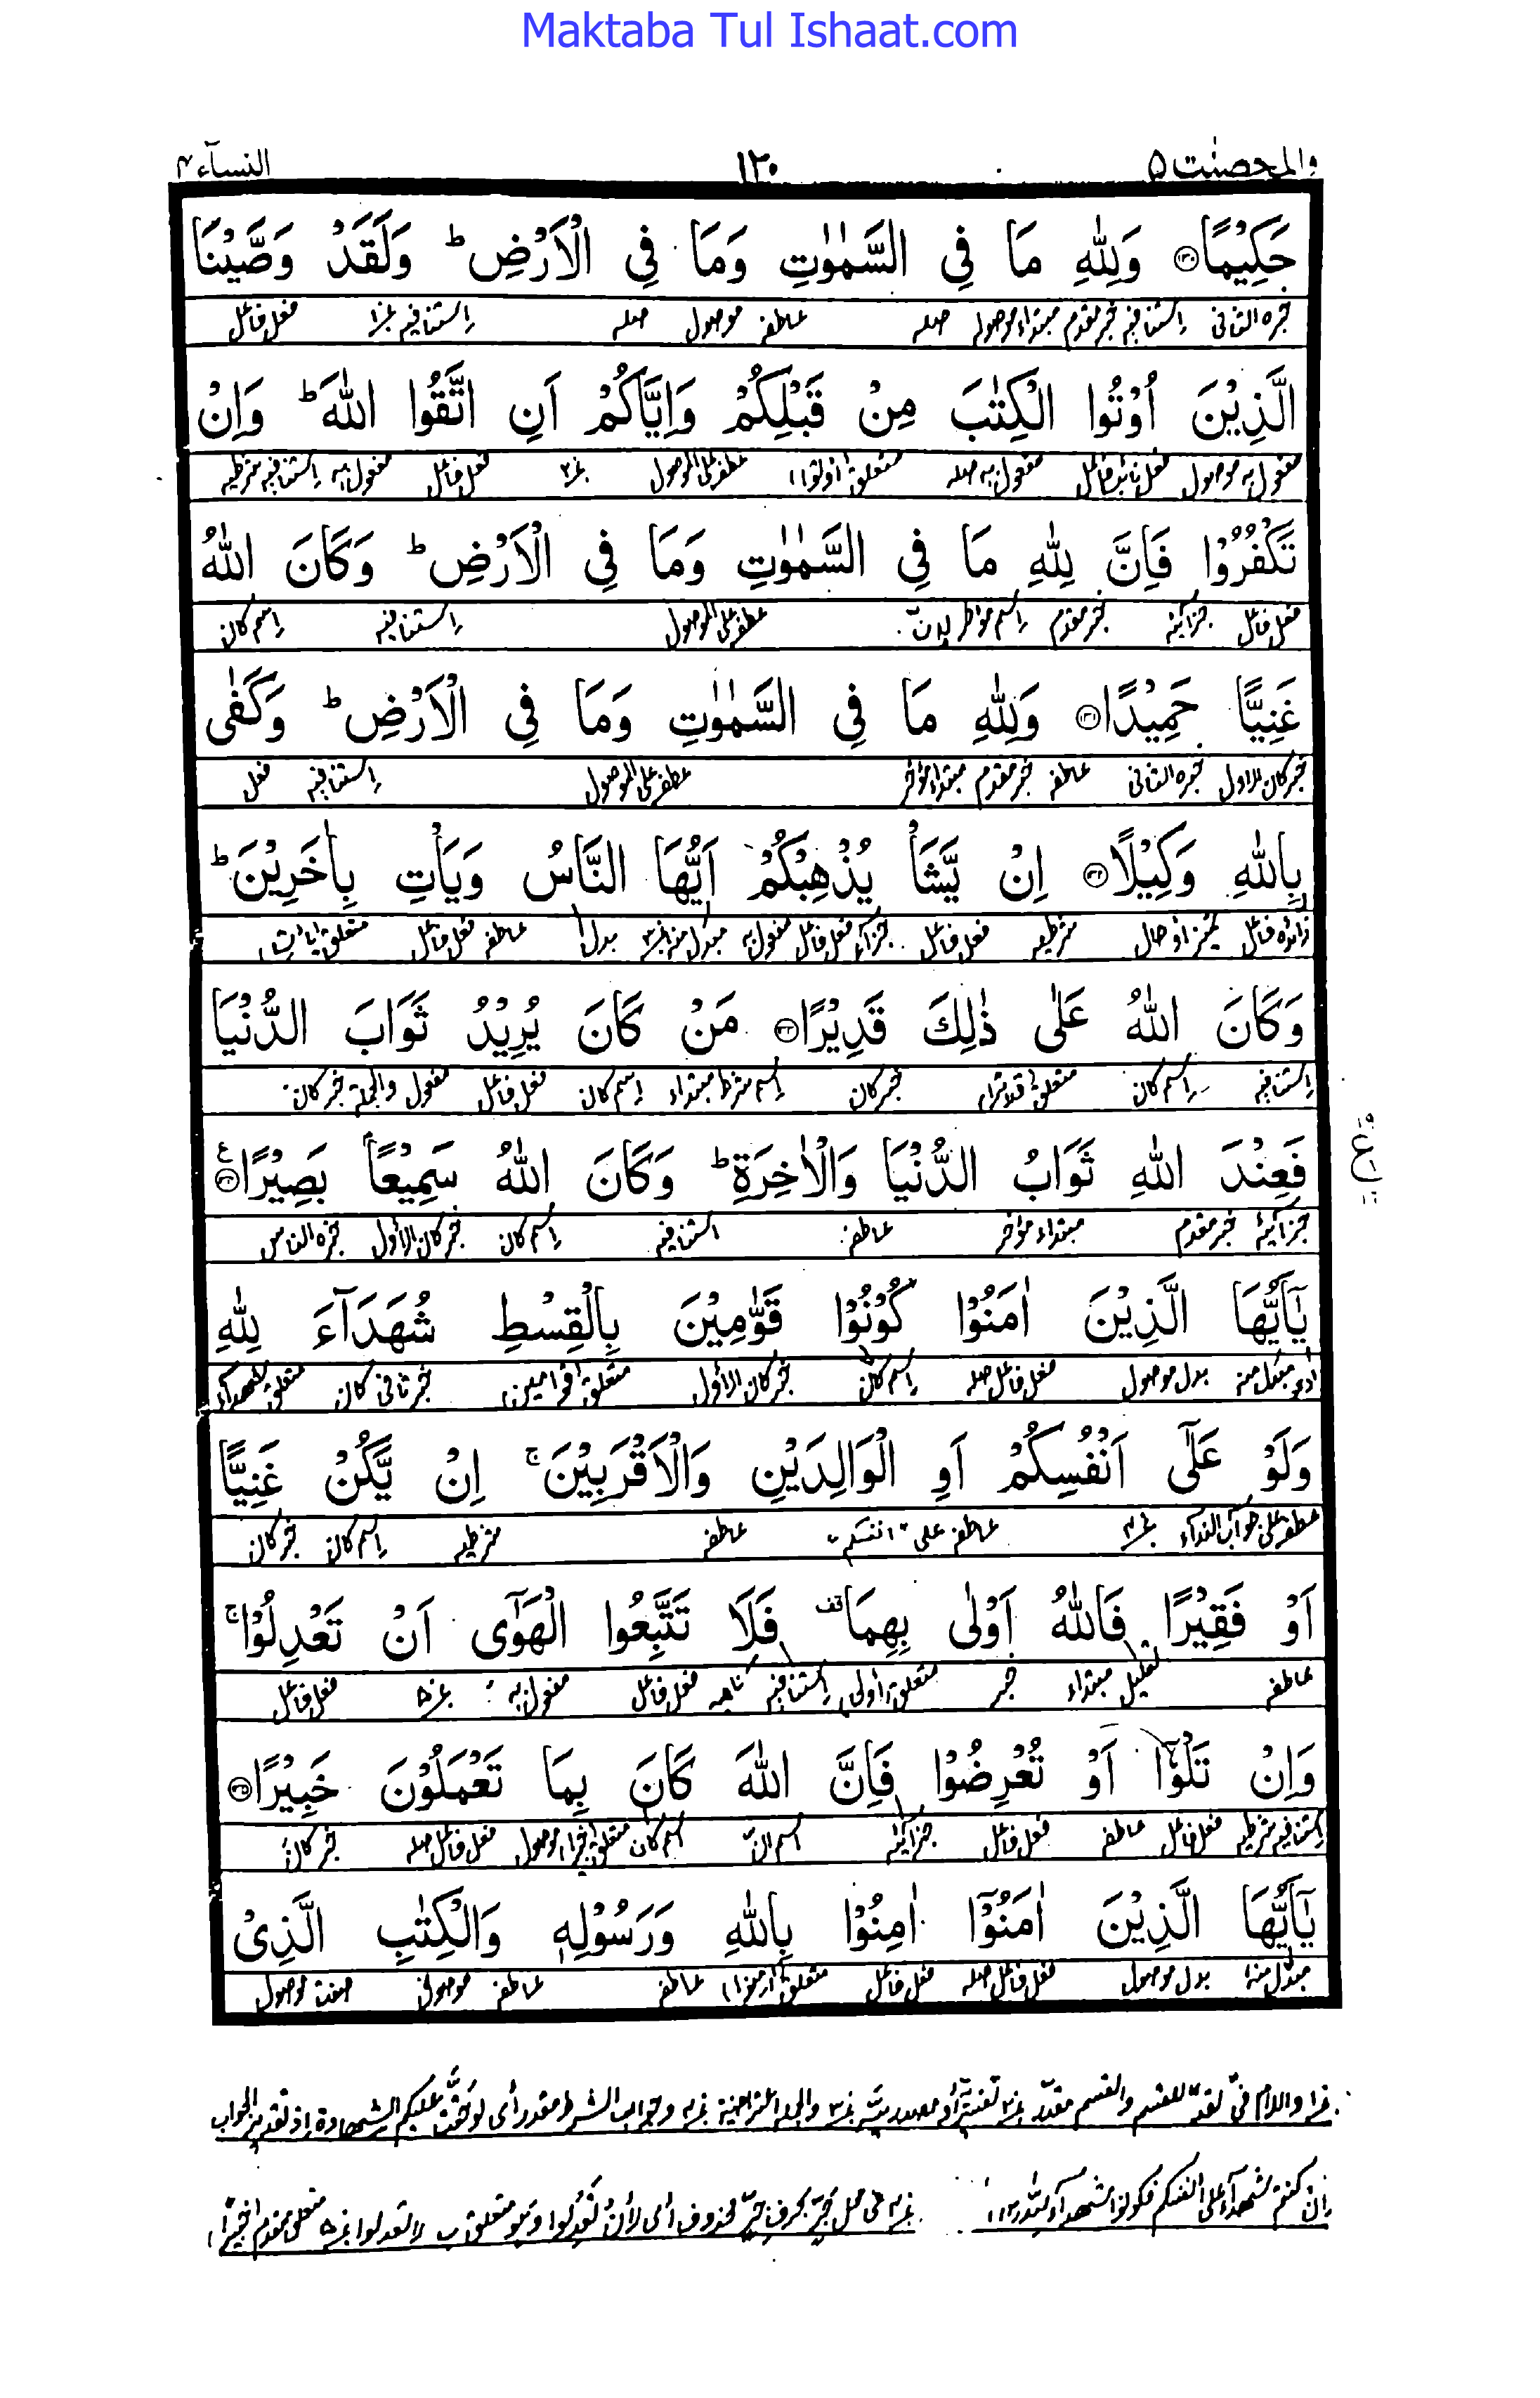 Maktaba Tul Ishaat.com
والمحصنٰت ۵ ۱۳۰ النسآء ۴
حَكِيْمًا ۝۱۳۰ وَلِلّٰهِ مَا فِى السَّمٰوٰتِ وَمَا فِى الْاَرْضِ ؕ وَلَقَدْ وَصَّيْنَا
خبره الثانی استنافیہ خبر مقدم مبتداء موصول صلہ عاطفہ موصول صلہ استنافیہ فعل فاعل
الَّذِيْنَ اُوْتُوا الْكِتٰبَ مِنْ قَبْلِكُمْ وَاِيَّاكُمْ اَنِ اتَّقُوا اللّٰهَ ؕ وَاِنْ
مفعول بہ موصول فعل نائب فاعل مفعول بہ صلہ متعلق اوتوا عطف علی الموصول فعل فاعل مفعول بہ استنافیہ شرطیہ
تَكْفُرُوْا فَاِنَّ لِلّٰهِ مَا فِى السَّمٰوٰتِ وَمَا فِى الْاَرْضِ ؕ وَكَانَ اللّٰهُ
فعل فاعل جزائیہ خبر مقدم اسم مؤخر لان عطف علی الموصول استنافیہ اسم کان
غَنِيًّا حَمِيْدًا ۝۱۳۱ وَلِلّٰهِ مَا فِى السَّمٰوٰتِ وَمَا فِى الْاَرْضِ ؕ وَكَفٰى
خبر کان الاول خبره الثانی عاطفہ خبر مقدم مبتداء مؤخر عطف علی الموصول استنافیہ فعل
بِاللّٰهِ وَكِيْلًا ۝۱۳۲ اِنْ يَّشَاْ يُذْهِبْكُمْ اَيُّهَا النَّاسُ وَيَاْتِ بِاٰخَرِيْنَ ؕ
زائدہ فاعل تمیز او حال شرطیہ فعل فاعل جزآء فعل فاعل مفعول بہ مبدل منہ بدل عاطفہ فعل فاعل متعلق
وَكَانَ اللّٰهُ عَلٰى ذٰلِكَ قَدِيْرًا ۝۱۳۳ مَنْ كَانَ يُرِيْدُ ثَوَابَ الدُّنْيَا
استنافیہ اسم کان متعلق خبر کان اسم شرط مبتداء اسم کان فعل فاعل مفعول والجملۃ خبر کان
فَعِنْدَ اللّٰهِ ثَوَابُ الدُّنْيَا وَالْاٰخِرَةِ ؕ وَكَانَ اللّٰهُ سَمِيْعًاۢ بَصِيْرًا ۝۱۳۴ ع
جزائیۃ خبر مقدم مبتداء مؤخر عاطفہ استنافیہ اسم کان خبر کان الاول
يٰٓاَيُّهَا الَّذِيْنَ اٰمَنُوْا كُوْنُوْا قَوّٰمِيْنَ بِالْقِسْطِ شُهَدَآءَ لِلّٰهِ
مبدل منہ بدل موصول فعل فاعل صلہ اسم کان خبر کان الاول متعلق قوامین خبر ثانی کان متعلق شهدآء
وَلَوْ عَلٰٓى اَنْفُسِكُمْ اَوِ الْوَالِدَيْنِ وَالْاَقْرَبِيْنَ ۚ اِنْ يَّكُنْ غَنِيًّا
عطف علی جواب الندآء عاطفہ علی انفسکم عاطفہ شرطیہ اسم کان خبر کان
اَوْ فَقِيْرًا فَاللّٰهُ اَوْلٰى بِهِمَا قف فَلَا تَتَّبِعُوا الْهَوٰٓى اَنْ تَعْدِلُوْا ۚ
عاطفہ تعلیل مبتداء خبر متعلق اولی استنافیہ ناهیہ فعل فاعل مفعول بہ فعل فاعل
وَاِنْ تَلْوٗٓا اَوْ تُعْرِضُوْا فَاِنَّ اللّٰهَ كَانَ بِمَا تَعْمَلُوْنَ خَبِيْرًا ۝۱۳۵
استنافیہ شرطیہ فعل فاعل عاطفہ فعل فاعل جزائیۃ اسم ان اسم کان متعلق خبیرا موصول فعل فاعل صلہ خبر کان
يٰٓاَيُّهَا الَّذِيْنَ اٰمَنُوْٓا اٰمِنُوْا بِاللّٰهِ وَرَسُوْلِهٖ وَالْكِتٰبِ الَّذِىْ
مبدل منہ بدل موصول فعل فاعل صلہ فعل فاعل متعلق آمنوا عاطفہ عاطفہ موصوف صفت موصول
واللام فی لقد للقسم والقسم مقدر تفسیریۃ او مصدریۃ والجملۃ اعتراضیۃ وجواب الشرط مقدر ای لو علیکم الشهادة اذ تقدیر الجواب
ان کنتم شهدآء علی انفسکم فکونوا شهدآء للہ فی محل جر بحرف جر محذوف ای لان تعدلوا وهو متعلق ب لا تعدلوا متعلق مقدم خبیرا